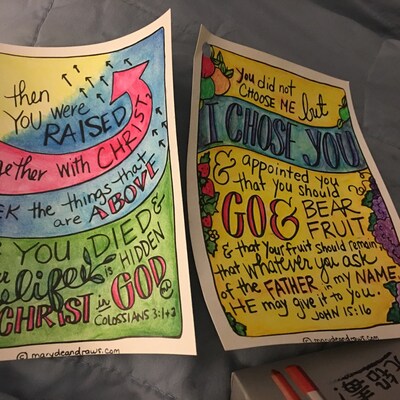 then
YOU were
RAISED
ogether with CHRIST.
EK the things that
are ABOVE
YOU DIED &
life is HIDDEN
CHRIST in GOD
COLOSSIANS 3:1+3
© marydeandraws.com
you did not
CHOOSE ME but
I CHOSE YOU
& appointed you
that you should
GO & BEAR
FRUIT
& that your fruit should remain
that whatever you ask
of the FATHER in my NAME
HE may give it to you.
JOHN 15:16
© marydeandraws.com